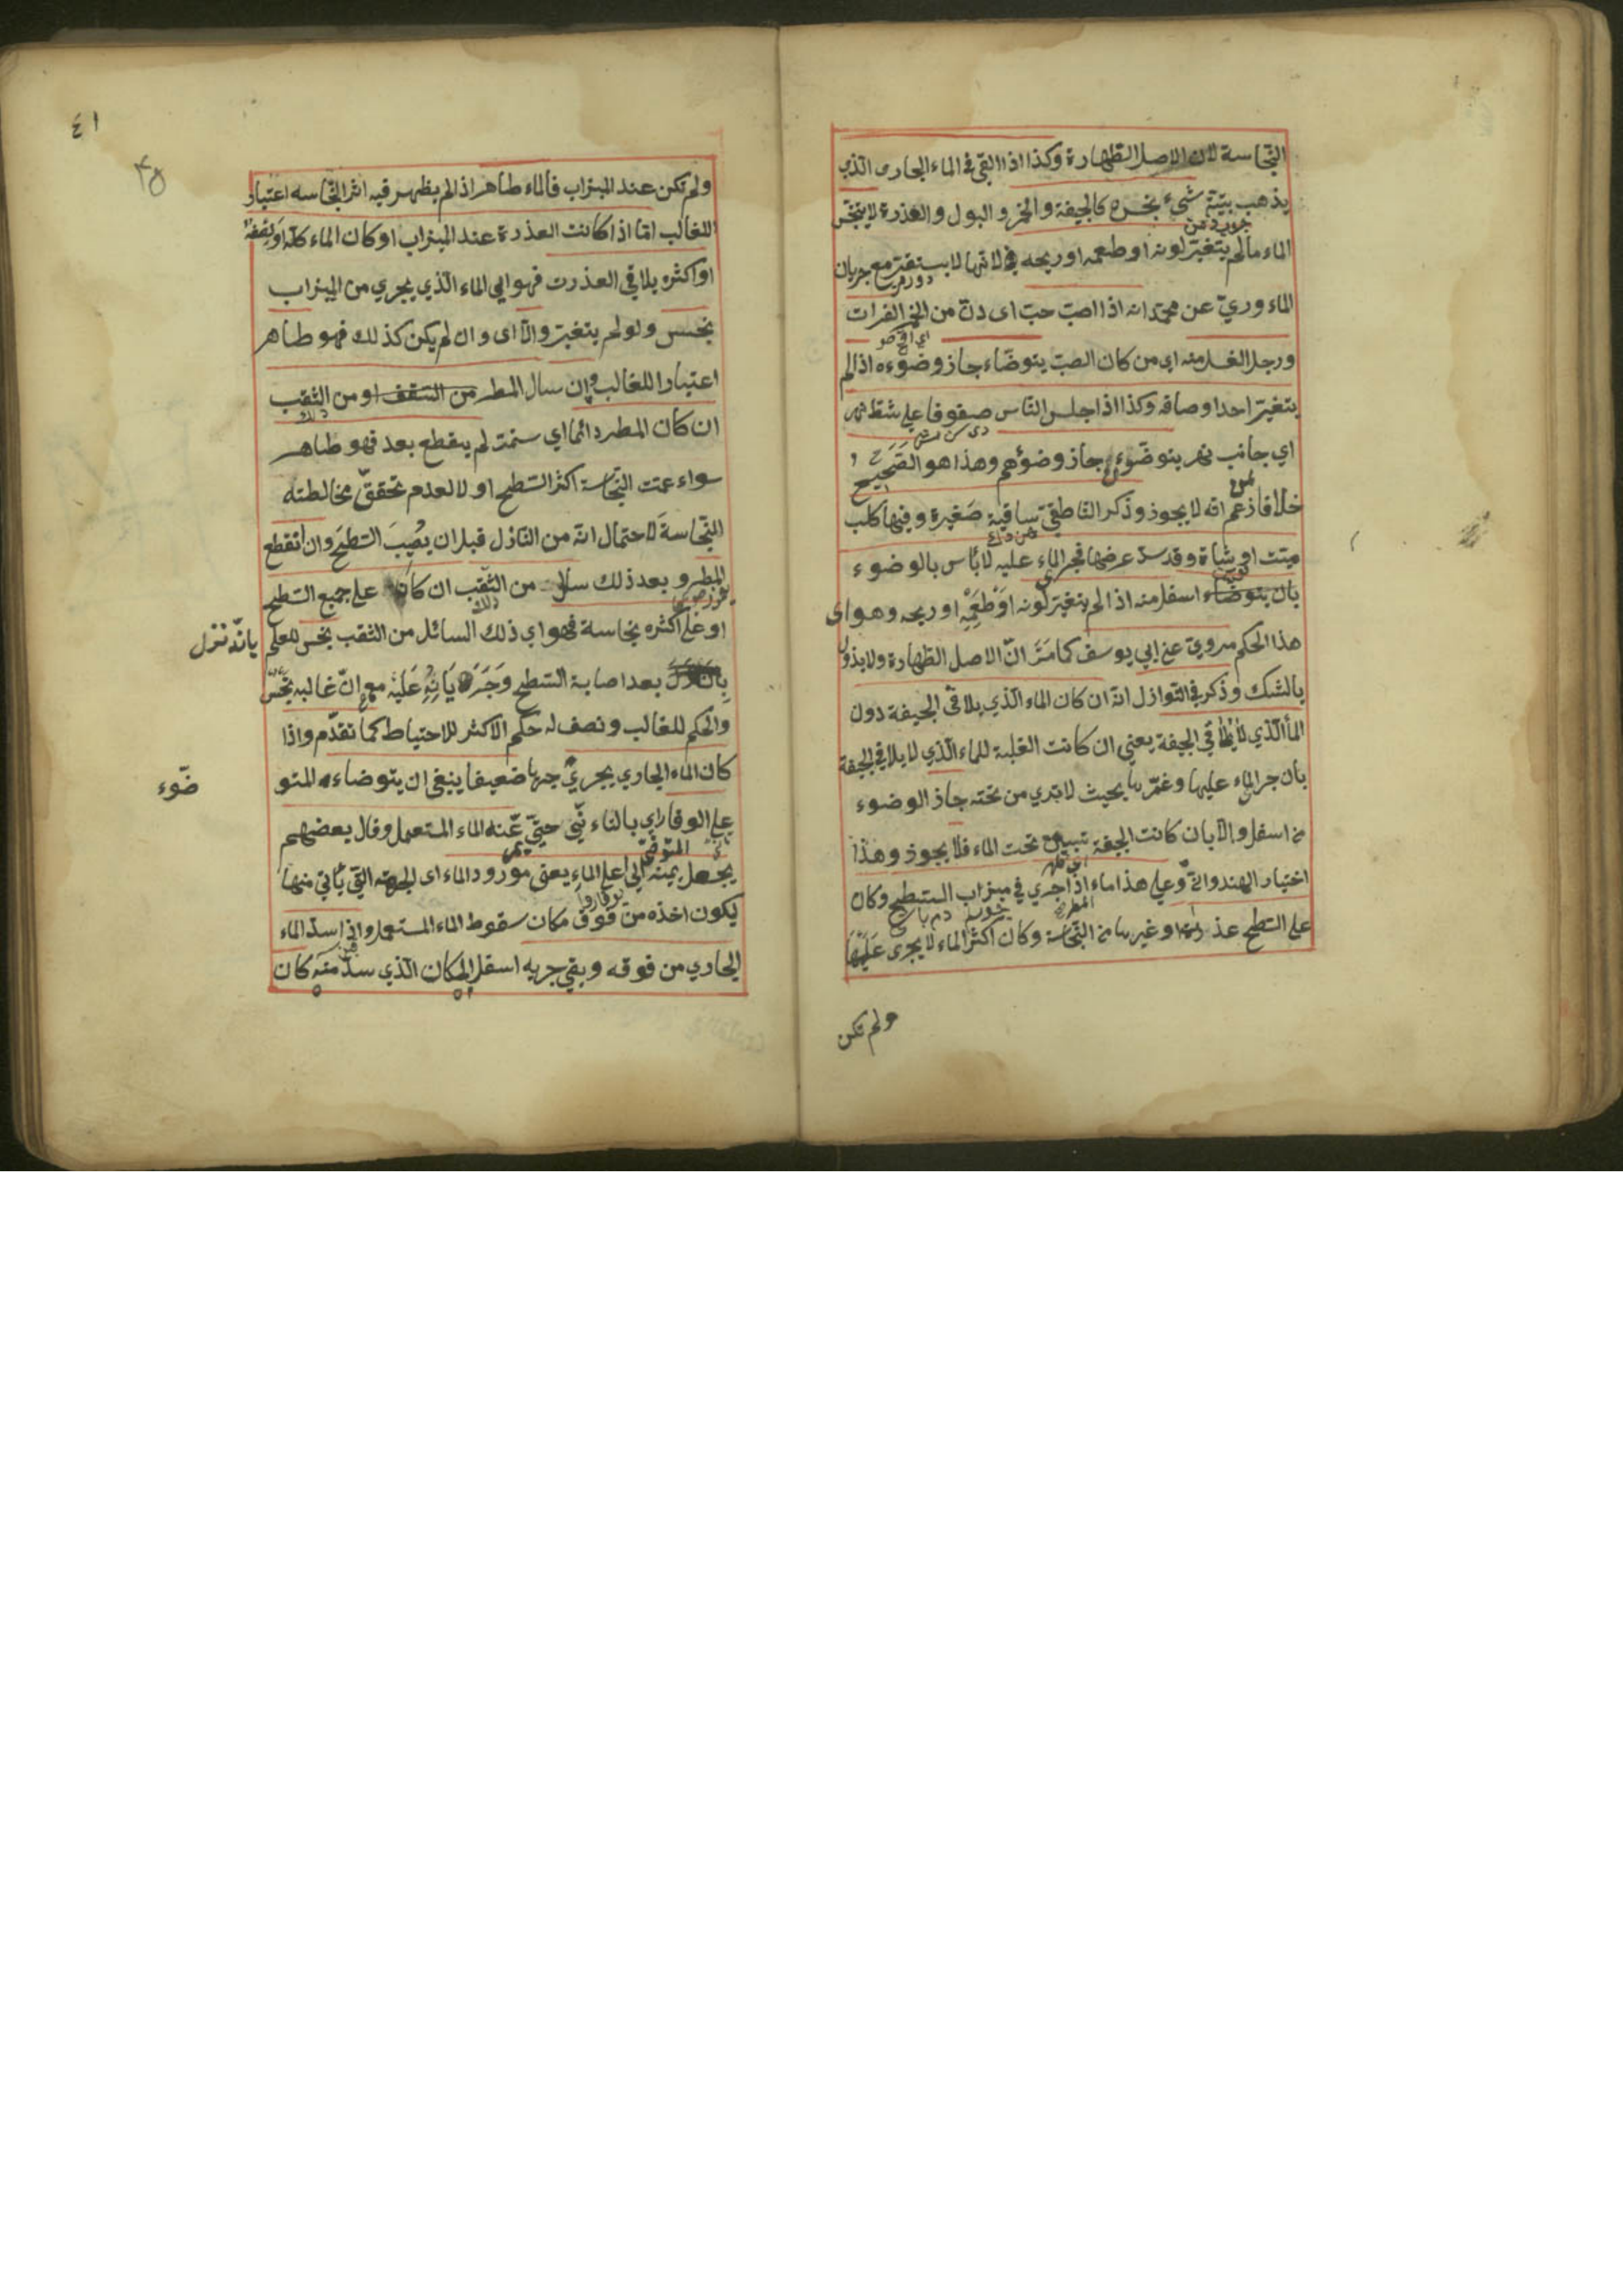 النّجاسة لان الاصل الطّهارة وكذا اذا القى فى الماء الجارى الّذي
يذهب بتبنة شيء نجس كالجيفة والخمر والبول والعذرة لا ينجّس
الماء مالم يتغيّر لونه او طعمه او ريحه لانها لا يستقرّ مع جريان
الماء وروي عن محمّد انه اذا اصبّ حبّ اى دنّ من الخمر الفرات
ورجل اسفل منه اي من كان الصبّ يتوضّاء جاز وضوءه اذا لم
يتغيّر احد اوصافه وكذا اذا جلس النّاس صفوفا على شطّ نهر
اي جانب نهر يتوضّوءن جاز وضوؤهم وهذا هو الصَّحِيح
خلافا لمن زعم انّه لا يجوز وذكر النّاطفي ساقية صَغيرة وفيها كلب
ميّت او شاة وقد سدّ عرضها فجر الماء عليه لا بأس بالوضوء
بان يتوضّاء اسفل منه اذا لم يتغيّر لونه او طَعْمِهِ او ريحه وهو اى
هذا الحكم مروي عن ابي يوسف كما مَرَّ انّ الاصل الطهارة ولا يذول
بالشك وذكر في النّوازل انّه ان كان الماء الّذي يلاقى الجيفة دون
الماالّذي لا يلاقي الجيفة يعني ان كانت الغلبة للماء الّذي لا يلاقي الجيفة
بان جر الماء عليها وغمّرها بحيث لا تدي من تحته جاز الوضوء
من اسفل والّا بان كانت الجيفة تبين تحت الماء فلا يجوز وهذا
اختيار الهندوانىّ وعلى هذا ماء المطر اذا جري في ميزاب السّطح وكان
على السّطح عذرة او غيرها من النّجاسة وكان اكثر الماء لا يجرى عَلَيْهَا
ولم تكن
٤١
ولم تكن عند الميزاب فالماء طاهر اذا لم يظهر فيه اثر النّجاسه اعتبار
للغالب امّا اذا كانت العذرة عند الميزاب او كان الماء كلّه او نصفه
او اكثره يلاقي العذرت فهو اي الماء الّذي يجري من الميزاب
نجس ولو لم يتغيّر والّا اى وان لم يكن كذلك فهو طاهر
اعتبارا للغالب وإن سال المطر من السّقف او من الثقب
ان كان المطر دائما اي لم ينقطع بعد فهو طاهر
سواء عمّت النّجاسة اكثر السّطح او لا لعدم تحقق مخالطته
النّجاسة لاحتمال انّه من النّازل قبل ان يصُيبَ السّطح وان انقطع
المطر و بعد ذلك سال من الثّقب ان كان على جميع السّطح
او على اكثره نجاسة فهو اي ذلك السائل من الثقب نجس للعلم
بانّه نزل
بعد اصابة السّطح وَجَرَيَانِهِ عَلَيْه مع انّ غالبه نجَسٌ
والحكم للغالب ونصف له حكم الاكثر للاحتياط كما تقدّم واذا
كان الماء الجاري يجري جريا ضعيفا ينبغى ان يتوضاءه المتو
ضّوء
على الوقار اي بالتاء نّي حتىّ عنه الماء المستعمل وقال بعضهم
يجعل يمينه الى اعلى الماء يعنى مورود الماء اى الجهة التي يأتي منها
ليكون اخذه من فوق مكان سقوط الماء المستعمل واذا سدّ الماء
الجاري من فوقه وبقي جريه اسفل المكان الّذي سدّ منه كان